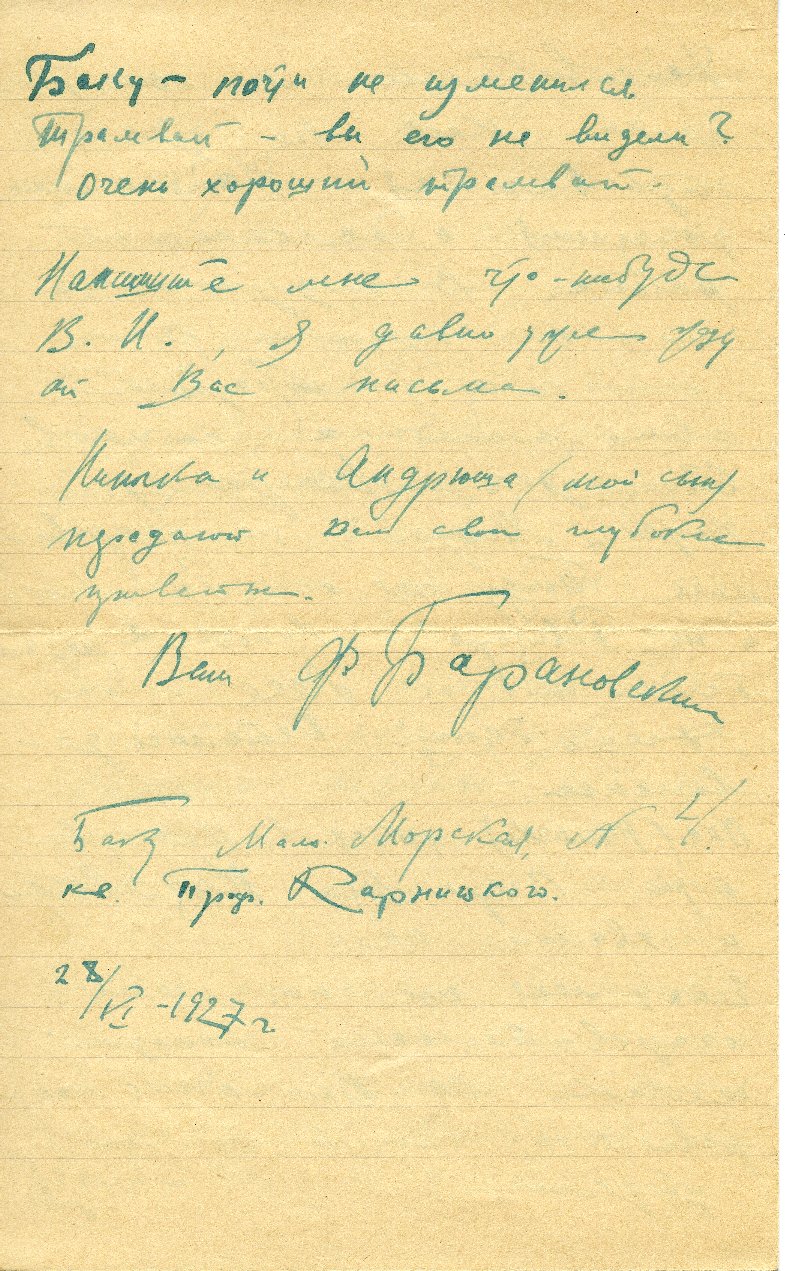 Баку – почти не изменился
Трамвай – вы его не видели?
Очень хороший трамвай.
Напишите мне что-нибудь
В. И., я давно уже жду
от Вас письма.
и Андрюша (мой сын)
передают Вам свои глубокие
приветы.
Ваш Ф Барановский
Баку Мало Морская, № 4/
кв. Проф. Карницкого.
28/VI – 1927 г